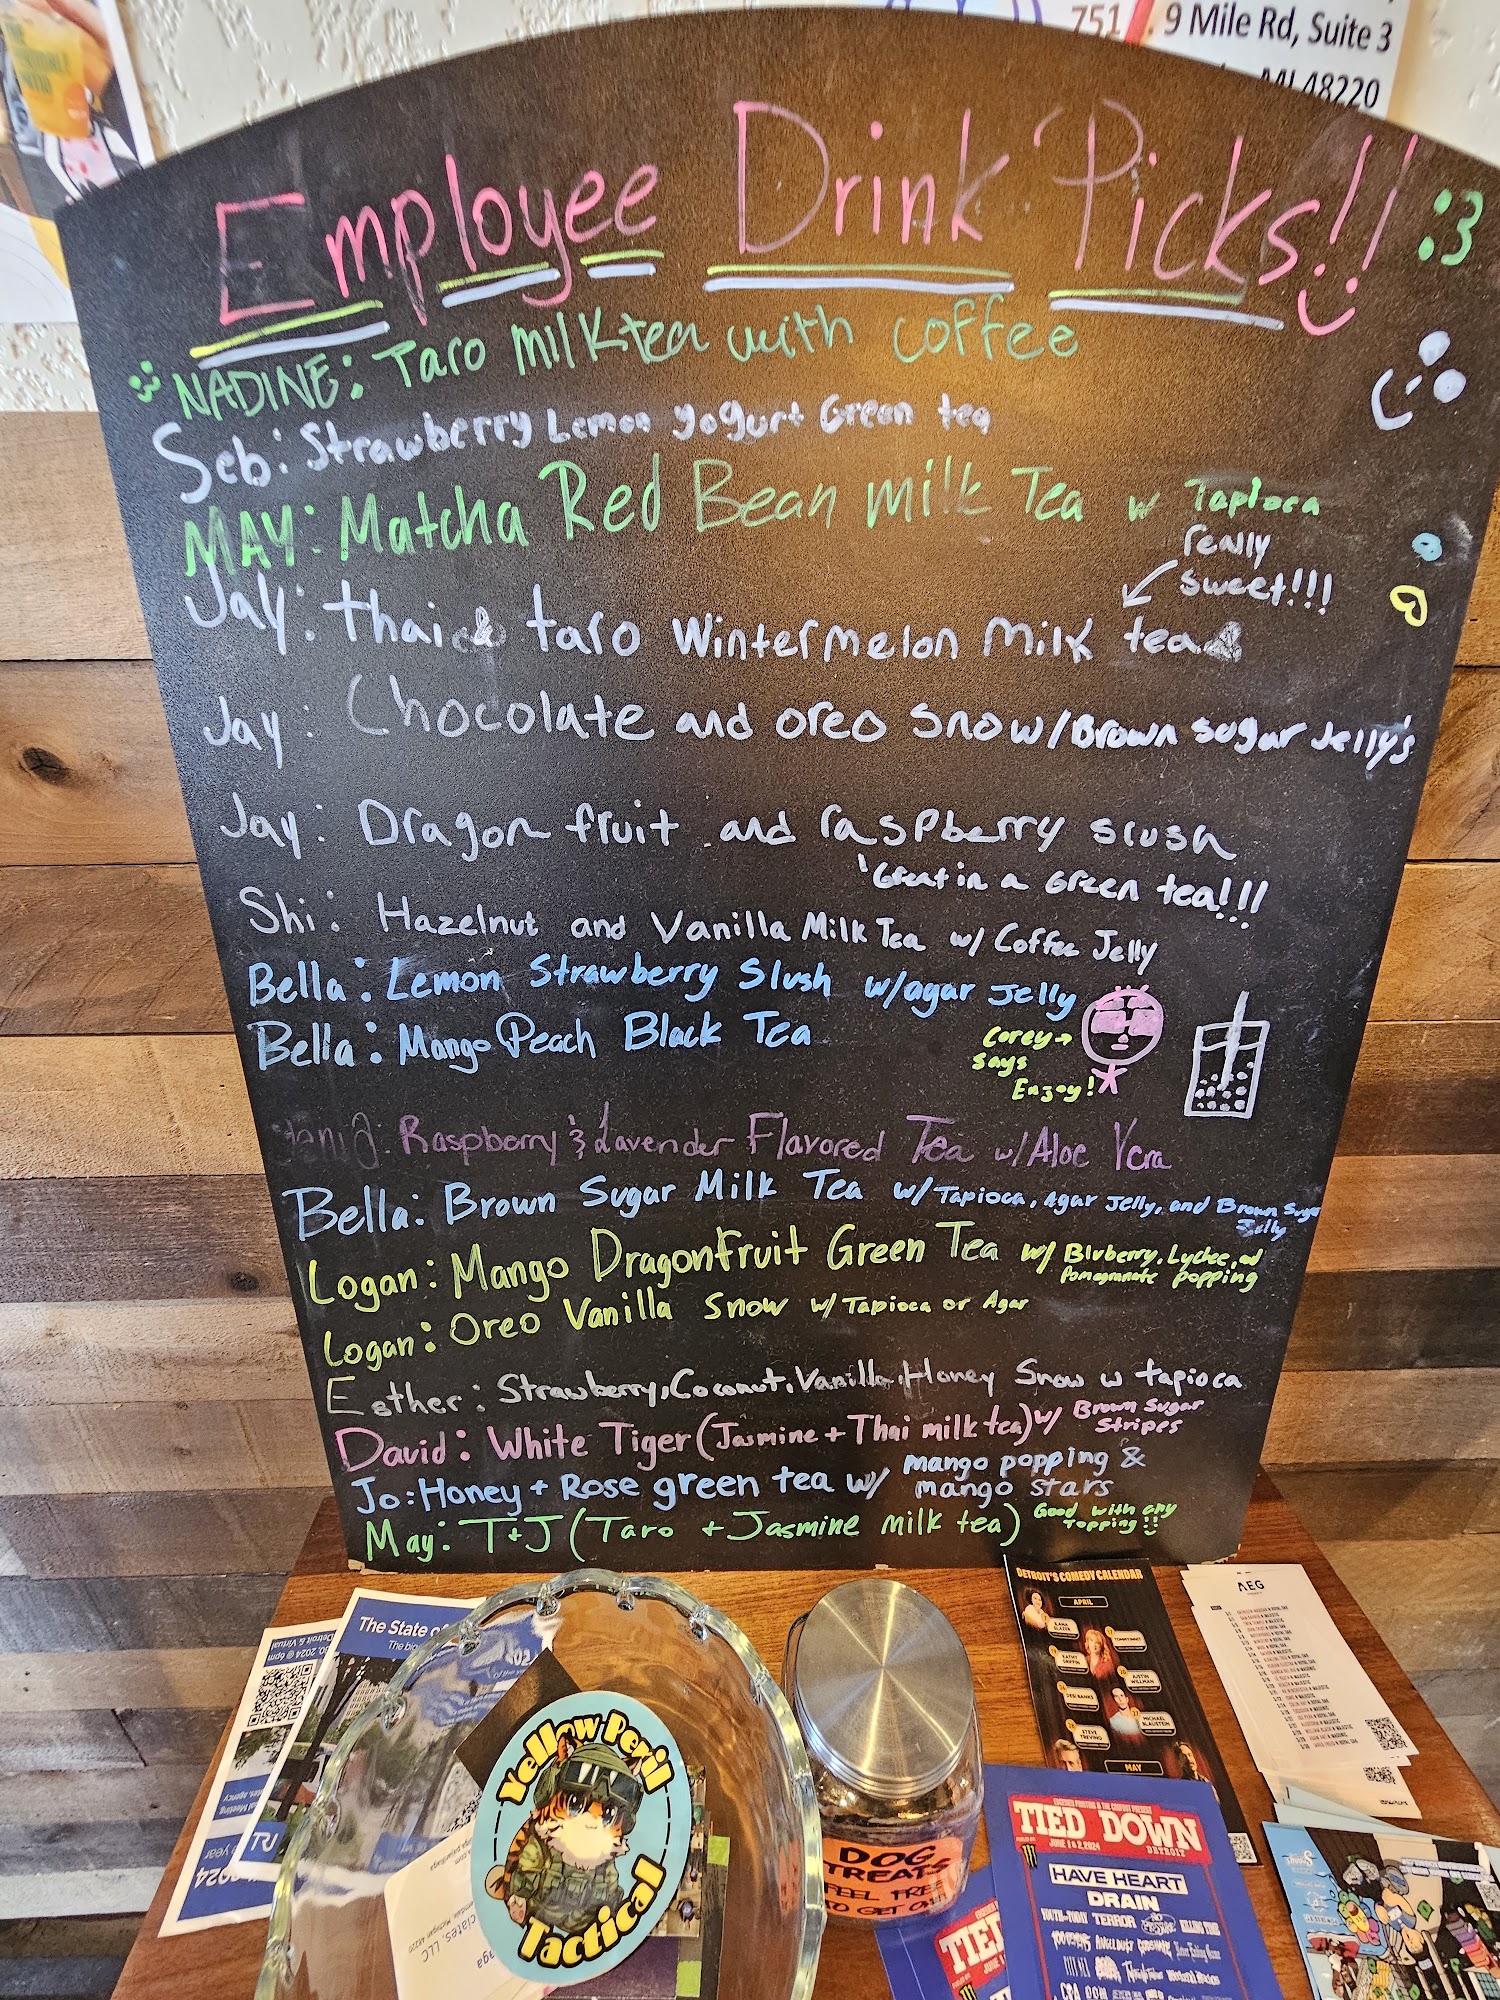 751
9 Mile Rd, Suite 3
MI 48220
Employee Drink Picks!! :3
NADINE: Taro milk tea with coffee
Seb: Strawberry Lemon yogurt Green tea
MAY: Matcha Red Bean milk Tea w Tapioca
really
sweet!!!
Jay: thai & taro Wintermelon milk tea
Jay: Chocolate and oreo snow/Brown sugar Jelly's
Jay: Dragon fruit and raspberry slush
Great in a Green tea!!!
Shi: Hazelnut and Vanilla Milk Tea w/ Coffee Jelly
Bella: Lemon Strawberry Slush w/agar Jelly
Bella: Mango Peach Black Tea
Corey
says
Enjoy!
Raspberry & Lavender Flavored Tea w/Aloe Vera
Bella: Brown Sugar Milk Tea w/Tapioca, Agar Jelly, and Brown Sugar
Jelly
Logan: Mango DragonFruit Green Tea w/ Bluberry, Lychee, ad
Pomegranate popping
Logan: Oreo Vanilla Snow w/Tapioca or Agar
Esther: Strawberry, Coconut, Vanilla, Honey Snow w tapioca
David: White Tiger (Jasmine + Thai milk tea) w/ Brown Sugar
Stripes
Jo: Honey + Rose green tea w/ mango popping &
mango stars
May: T+J (Taro + Jasmine milk tea) Good with any
Topping!!
The State of
Detroit & Virtual
Yellow Peril
Tactical
LLC
DOG
TREATS
FEEL FREE
TO GET ONE
DETROIT'S COMEDY CALENDAR
APRIL
KATHY
GRIFFIN
TOMMYINNIT
JUSTIN
WILLMAN
DESI BANKS
MICHAEL
BLAUSTEIN
STEVE
TREVINO
MAY
AEG
TIED DOWN
DETROIT
JUNE 1 & 2 2024
HAVE HEART
DRAIN
TERROR
KILLING TIME
TIED